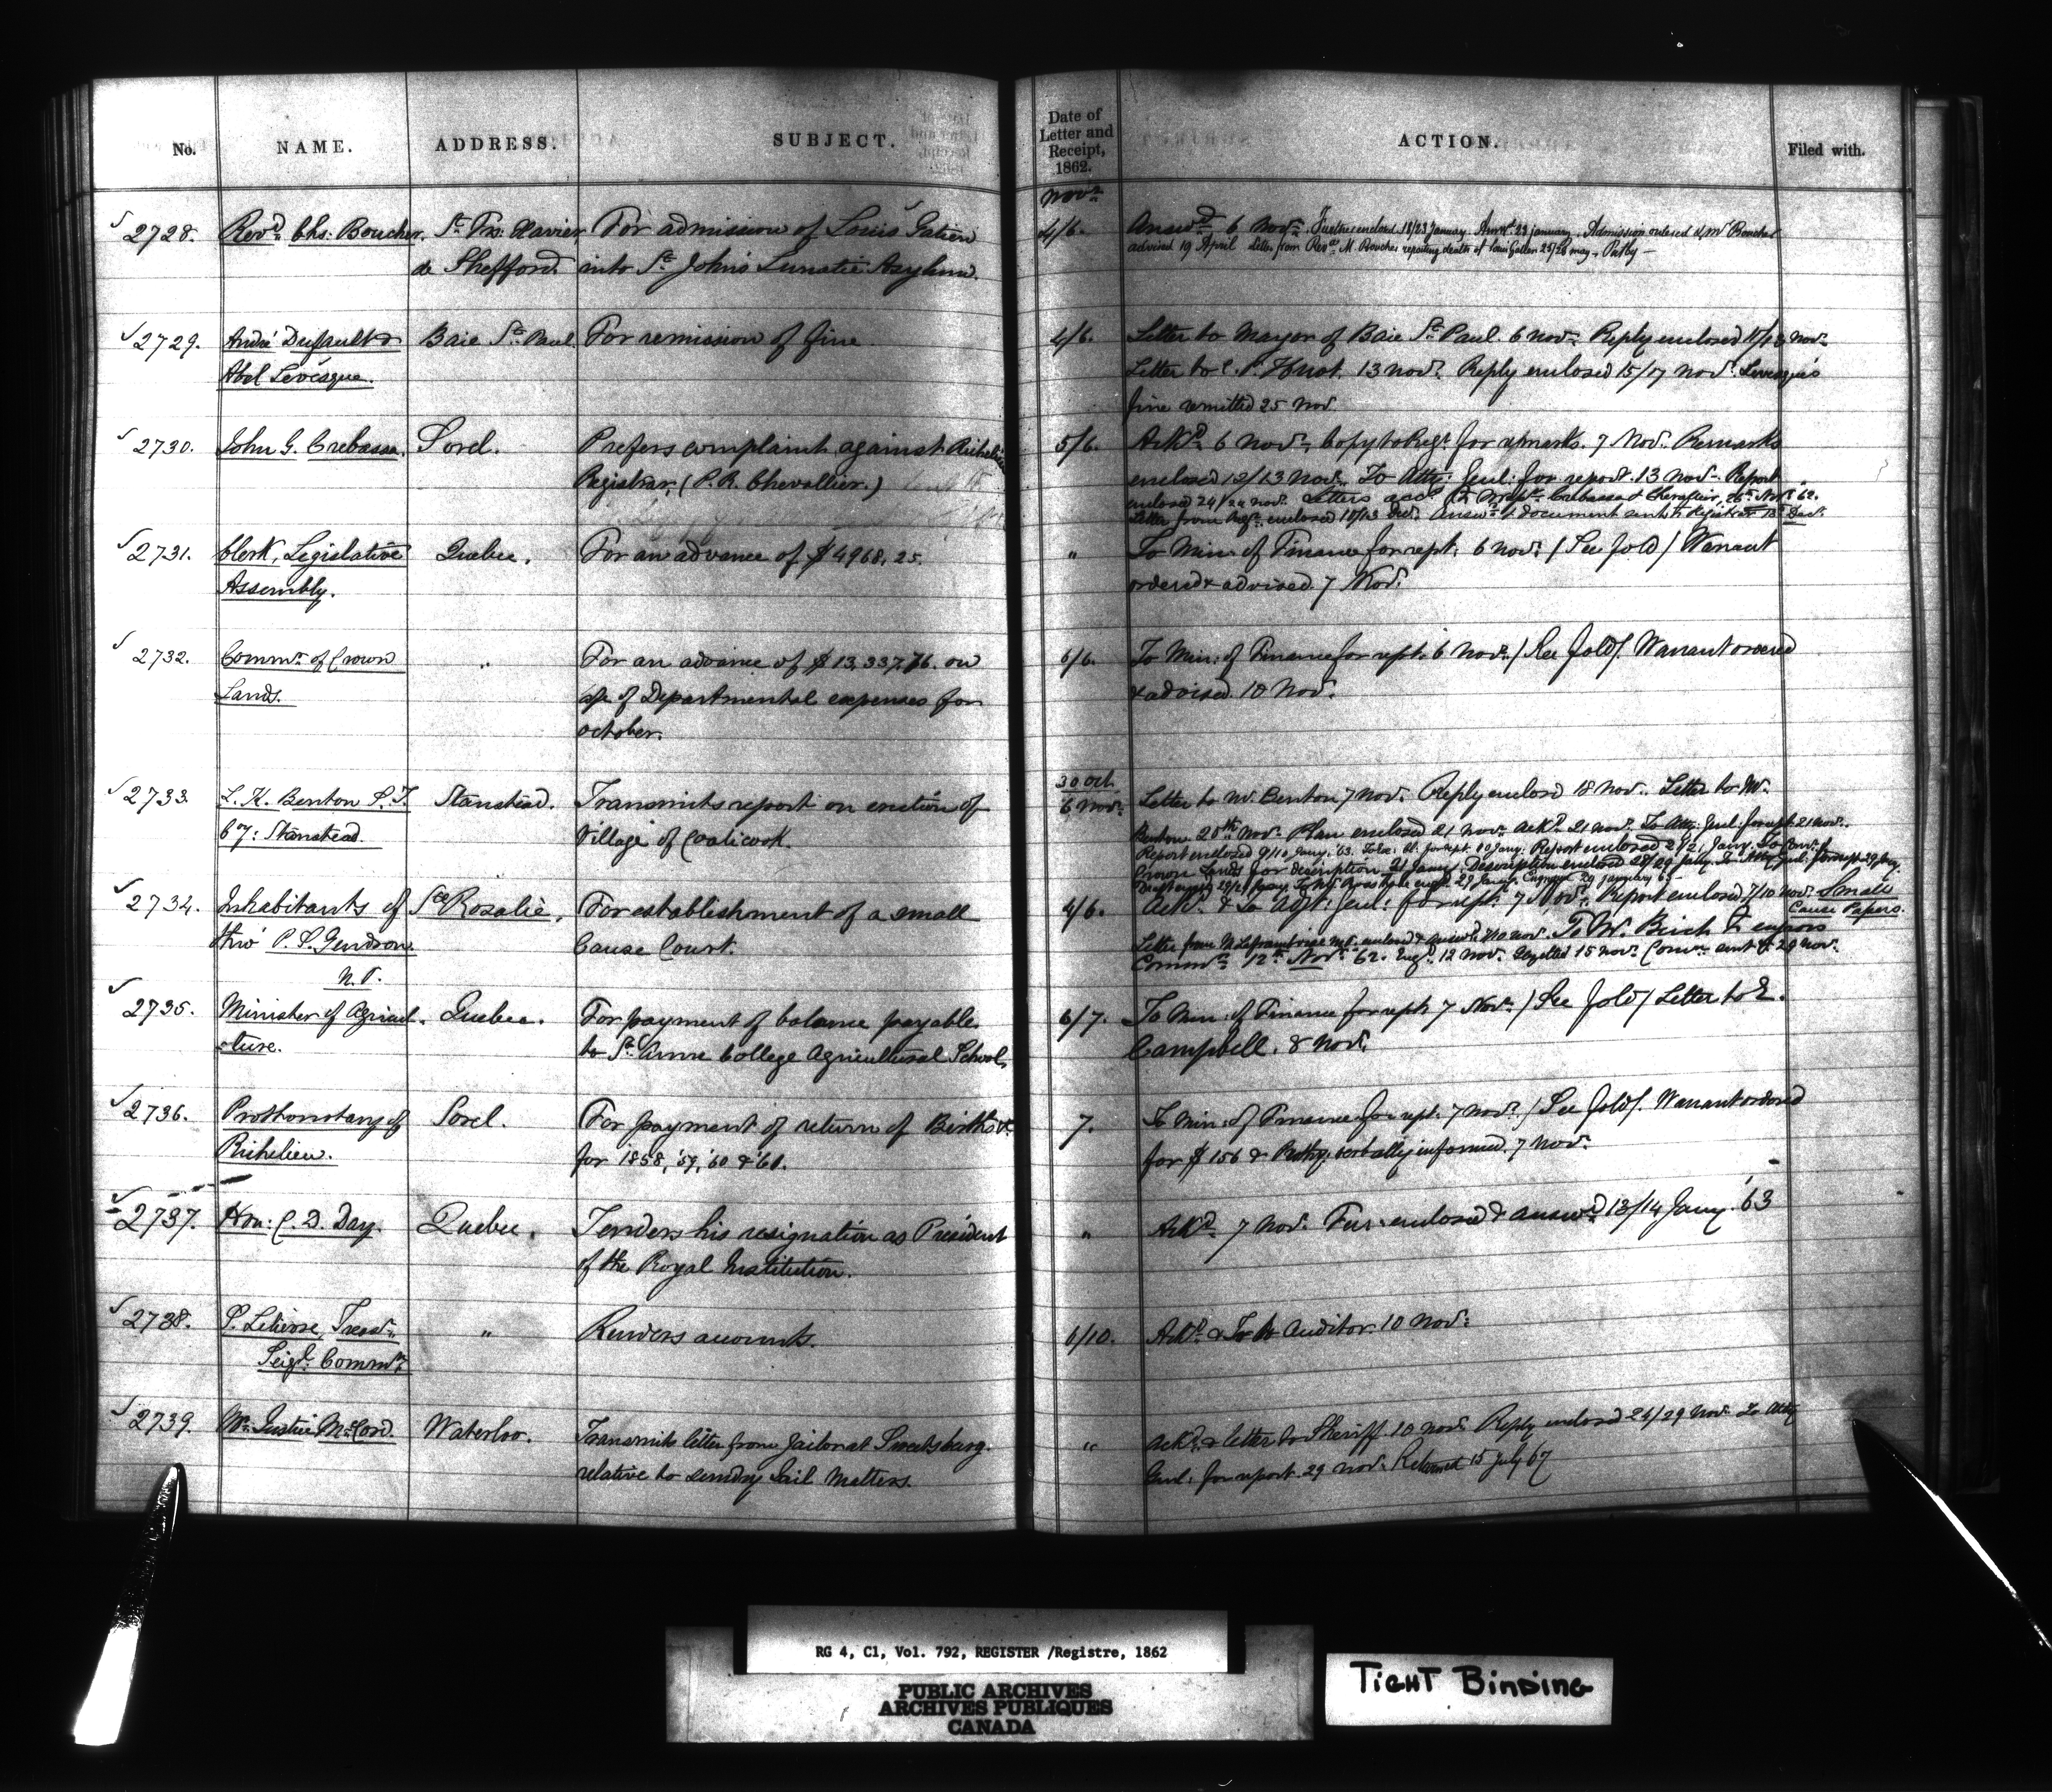 No. NAME. ADDRESS. SUBJECT. Date of Letter and Receipt, 1862. ACTION. Filed with.
Novr.
2728. Revd. Chs: Boucher. St. Frs: Xavier For admission of Louis Gatien 4/6. Answd. 6 Novr. Further enclosed 18/23 January. Answd. 23 January. Admission ordered & Mr Boucher
de Shefford into St. John's Lunatic Asylum. advised 19 April Letter from Revd. M. Boucher reporting death of Louis Gatien 25/26 May
2729. André Dussault & Baie St. Paul. For remission of fine 4/6. Letter to Mayor of Baie St. Paul. 6 Novr. Reply enclosed Novr.
Abel Levêsque. Letter to 13 Novr. Reply enclosed 15/17 Novr. Levesque's
fine remitted 25 Nov.
2730. John G. Crebassa. Sorel. Prefers complaint against Richelieu 5/6. Ackd. 6 Novr. Copy to Regr. for remarks. 7 Nov. Remarks
Registrar, (P. R. Chevallier.) enclosed 12/13 Novr. To Atty: Genl: for report. 13 Novr. Report
enclosed 24/ Novr. Letters Crebassa & Chevallier, 26th Novr. 62.
Letter from Regr. enclosed Decr. Answd. & document sent to Registrar 13th Decr.
2731. Clerk, Legislative Quebec. For an advance of $4968.25. " To Min: of Finance for rept. 6 Novr. (See fold) Warrant
Assembly. ordered & advised 7 Novr.
2732. Commr. of Crown " For an advance of $13,337.76. on 6/6. To Min: of Finance for rept. 6 Novr. (See fold). Warrant ordered
Lands. a/c of Departmental expenses for & advised. 10 Novr.
October.
30 Oct.
2733. L. K. Benton S. T. Stanstead. Transmits report on erection of 6 Novr. Letter to Mr. Benton 7 Novr. Reply enclosed 18 Novr. Letter to Mr.
Cy: Stanstead. Village of Coaticook. Benton 20th Novr. Plan enclosed 21 Novr. Ackd. 21 Novr. To Atty: Genl: for rept 21 Novr.
Report enclosed 9/10 Jany. '63. Report enclosed Jany. To Comr. of
Crown Lands for description 21 Jany. Description enclosed 28/29 Jany. To Atty Genl: for rept 29 Jany.
2734. Inhabitants of Ste Rosalie. For establishment of a small 4/6. Ackd. & to Atty: Genl: for rept. 7 Novr. Report enclosed 7/10 Novr. Small
thro' P. S. Gendron Cause Court. Cause Papers.
N. P. Letter from To W. Birch to engross
Commn. 12th Novr. 62. Engd. 12 Novr. Gazetted 15 Novr. Comn. sent 29 Novr.
2735. Minister of Agricul- Quebec. For payment of balance payable 6/7. To Min: of Finance for rept. 7 Novr. (See fold) Letter to E.
-ture. to St. Anne College Agricultural School. Campbell. 8 Novr.
2736. Prothonotary of Sorel. For payment of return of Births &c 7. To Min: of Finance for rept. 7 Novr. (See fold). Warrant ordered
Richelieu. for 1858, '59, '60 & '61. for $156 & Prothy. verbally informed. 7 Novr.
2737. Hon: C. D. Day. Quebec. Tenders his resignation as President " Ackd. 7 Novr. Fur: enclosed & answd. 13/14 Jany. '63
of the Royal Institution.
2738. Treasr. " Renders accounts. 6/10. Ackd. & To Auditor. 10 Novr.
Seigl. Commn.
2739. Mr. Justice McCord. Waterloo. Transmits letter from Jailor at Sweetsburg. " Ackd. & letter to Sheriff. 10 Novr. Reply enclosed 24/29 Novr. To Atty
relative to sundry Jail Matters. Genl: for report. 29 Novr. Returned 15 July 67
RG 4, C1, Vol. 792, REGISTER /Registre, 1862
PUBLIC ARCHIVES
ARCHIVES PUBLIQUES
CANADA
TIGHT BINDING